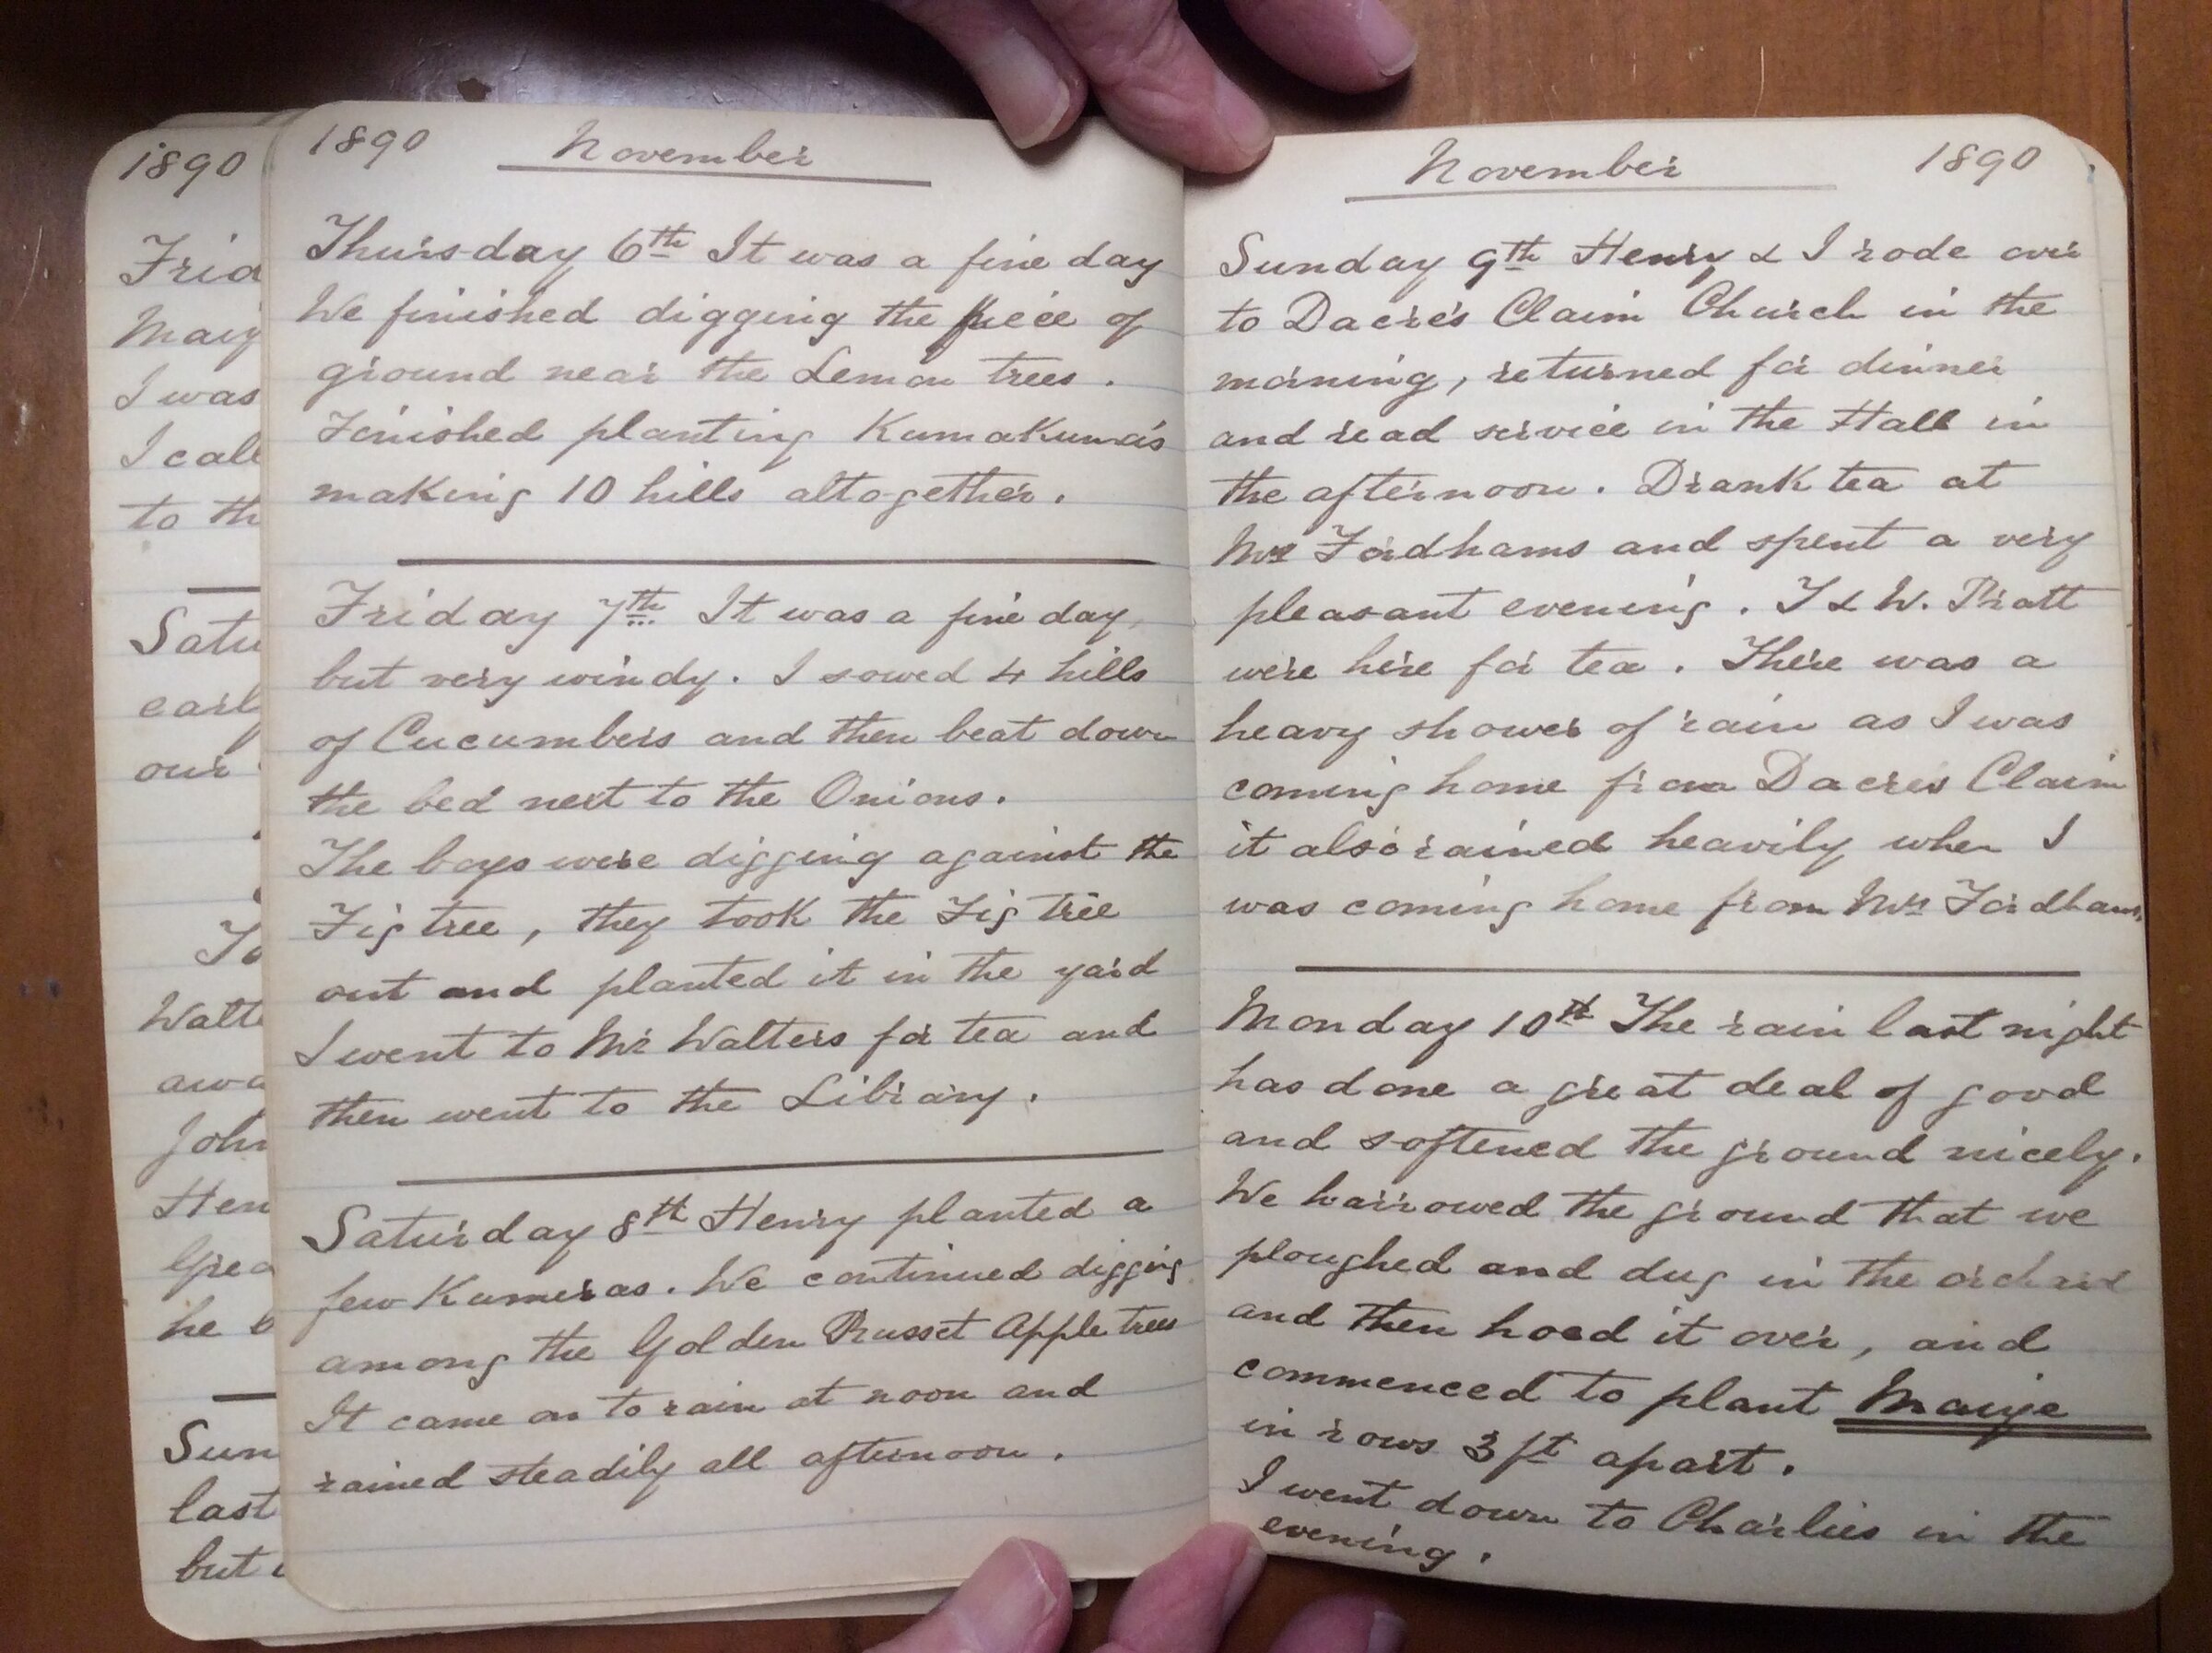 1890
Frid
Maiz
I was
I call
to th
Satu
earl
our
To
Walt
awa
John
Hen
Grea
he b
Sun
last
but
1890 November
Thursday 6th It was a fine day
We finished digging the piece of
ground near the Lemon trees.
Finished planting KumaKuma's
making 10 hills altogether.
Friday 7th It was a fine day,
but very windy. I sowed 4 hills
of Cucumbers and then beat down
the bed next to the Onions.
The boys were digging against the
Fig tree, they took the Fig tree
out and planted it in the yard
I went to Mr Walters for tea and
then went to the Library.
Saturday 8th Henry planted a
few Kumeras. We continued digging
among the Golden Russet Apple trees
It came on to rain at noon and
rained steadily all afternoon.
November 1890
Sunday 9th Henry & I rode over
to Dacre's Claim Church in the
morning, returned for dinner
and read service in the Hall in
the afternoon. Drank tea at
Mrs Fordhams and spent a very
pleasant evening. J & W. Pratt
were here for tea. There was a
heavy shower of rain as I was
coming home from Dacres Claim
it also rained heavily when I
was coming home from Mrs Fordhams.
Monday 10th The rain last night
has done a great deal of good
and softened the ground nicely.
We harrowed the ground that we
ploughed and dug in the orchard
and then hoed it over, and
commenced to plant Maize
in rows 3 ft apart.
I went down to Charlies in the
evening.